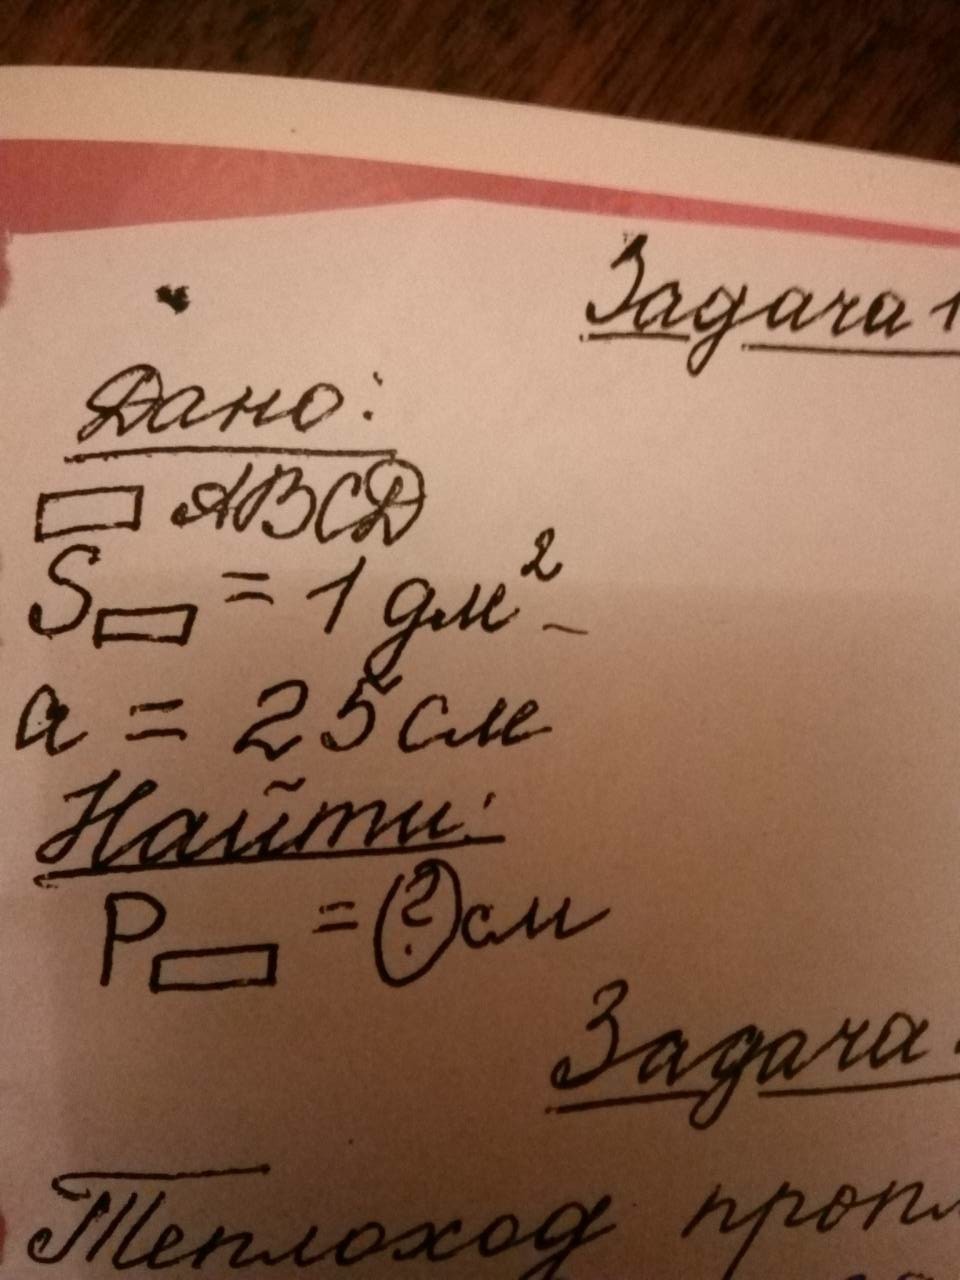 Задача 1
Дано:
▭ ABCD
S▭ = 1 дм²
a = 25 см
Найти:
P▭ = ? см
Задача
Теплоход